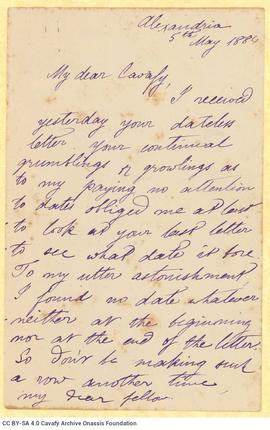 Alexandria
5th May 1884
My dear Cavafy,
I received
yesterday your dateless
letter your continual
grumblings & growlings as
to my paying no attention
to dates obliged me at last
to look at your last letter
to see what date it bore.
To my utter astonishment
I found no date whatever
neither at the beginning
nor at the end of the letter.
So don't be making such
a row another time
my dear fellow.
CC BY-SA 4.0 Cavafy Archive Onassis Foundation